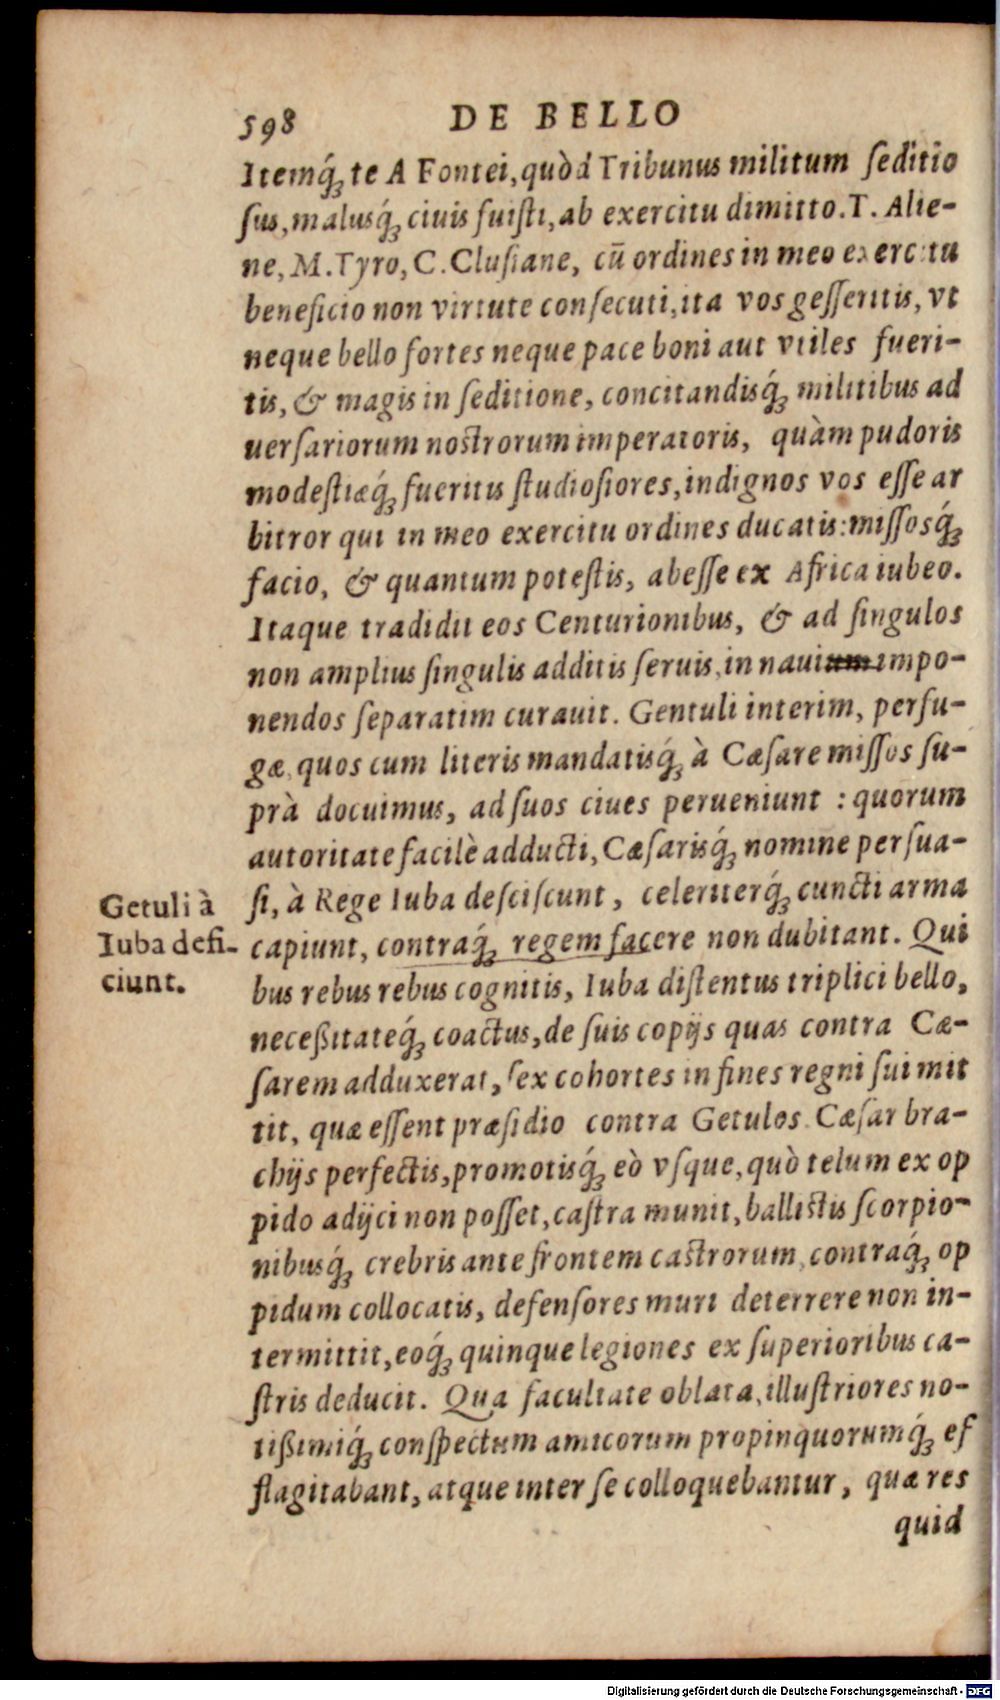 598 DE BELLO
Itemq́ue te A Fontei, quòd Tribunus militum ſeditio
ſus, malusq́ue ciuis fuiſti, ab exercitu dimitto. T. Alie-
ne, M. Tyro, C. Cluſiane, cū ordines in meo exercitu
beneficio non virtute conſecuti, ita vos geſſeritis, vt
neque bello fortes neque pace boni aut vtiles fueri-
tis, & magis in ſeditione, concitandisq́ue militibus ad
uerſariorum noſtrorum imperatoris, quàm pudoris
modeſtiæq́ue fueritis ſtudioſiores, indignos vos eſſe ar
bitror qui in meo exercitu ordines ducatis: miſſosq́ue
facio, & quantum poteſtis, abeſſe ex Africa iubeo.
Itaque tradidit eos Centurionibus, & ad ſingulos
non amplius ſingulis additis ſeruis, in nauium impo-
nendos ſeparatim curauit. Gentuli interim, perfu-
gæ, quos cum literis mandatisq́ue à Cæſare miſſos ſu-
prà docuimus, ad ſuos ciues perueniunt : quorum
autoritate facilè adducti, Cæſarisq́ue nomine perſua-
ſi, à Rege Iuba deſciſcunt, celeriterq́ue cuncti arma
capiunt, contraq́ue regem facere non dubitant. Qui
bus rebus rebus cognitis, Iuba diſtentus triplici bello,
neceßitateq́ue coactus, de ſuis copijs quas contra Cæ-
ſarem adduxerat, ſex cohortes in fines regni ſui mit
tit, quæ eſſent præſidio contra Getulos. Cæſar bra-
chijs perfectis, promotisq́ue eò vſque, quò telum ex op
pido adijci non poſſet, caſtra munit, balliſtis ſcorpio-
nibusq́ue crebris ante frontem caſtrorum, contraq́ue op
pidum collocatis, defenſores muri deterrere non in-
termittit, eoq́ue quinque legiones ex ſuperioribus ca-
ſtris deducit. Qua facultate oblata, illuſtriores no-
tißimiq́ue conſpectum amicorum propinquorumq́ue ef
flagitabant, atque inter ſe colloquebantur, quæ res
quid
Getuli à
Iuba defi-
ciunt.
Digitalisierung gefördert durch die Deutsche Forschungsgemeinschaft - DFG